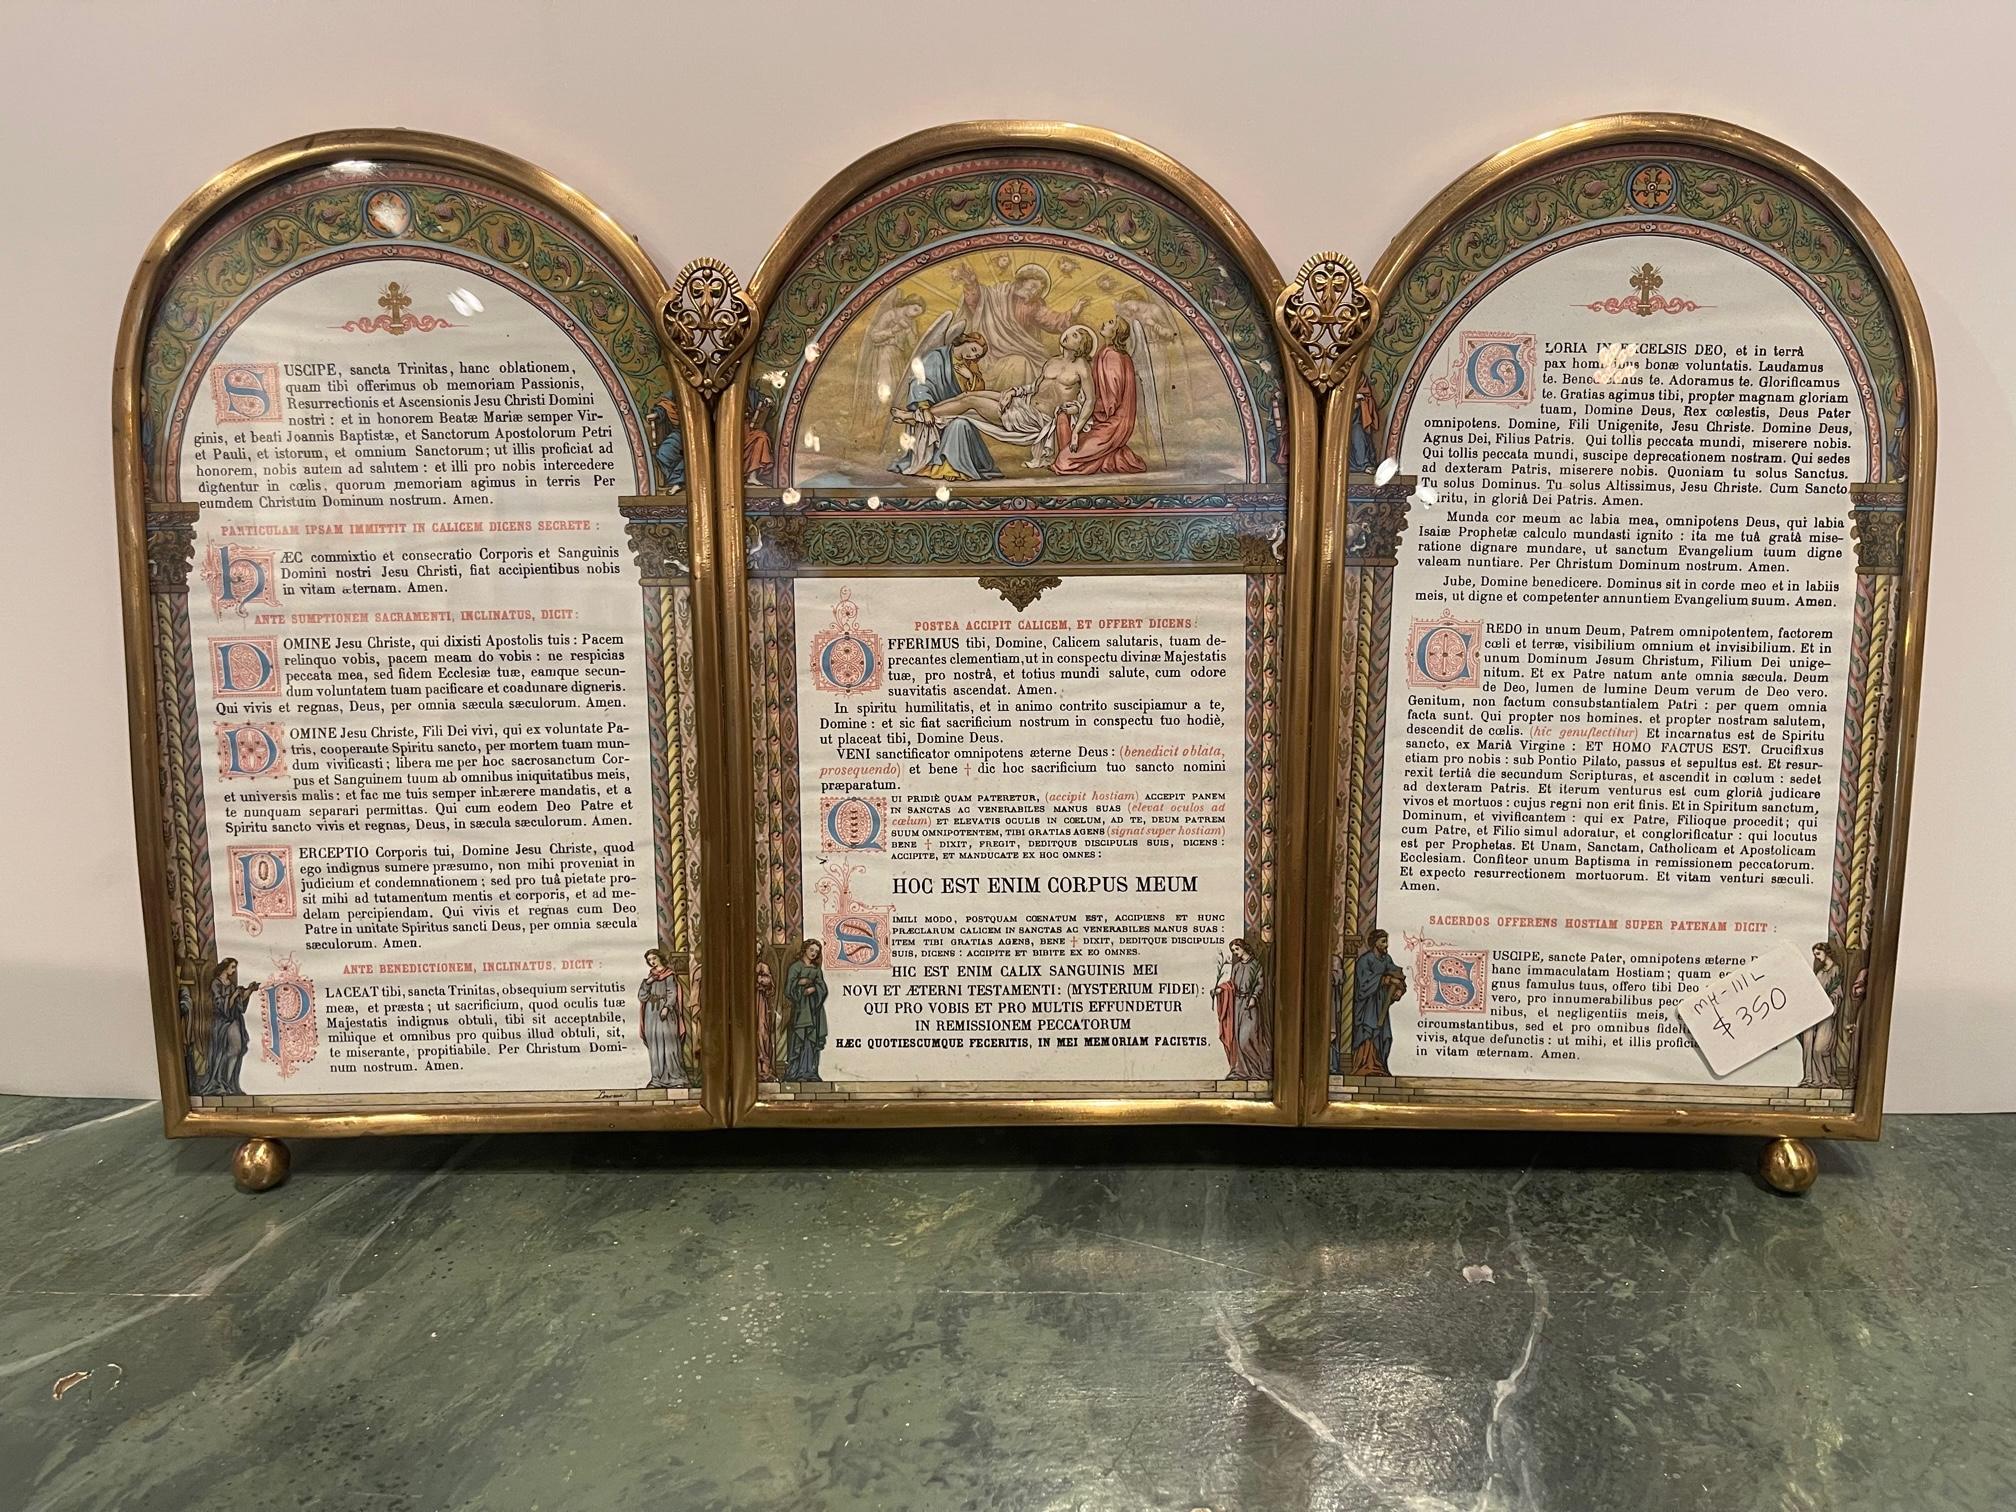 SUSCIPE, sancta Trinitas, hanc oblationem,
quam tibi offerimus ob memoriam Passionis,
Resurrectionis et Ascensionis Jesu Christi Domini
nostri : et in honorem Beatæ Mariæ semper Vir-
ginis, et beati Joannis Baptistæ, et Sanctorum Apostolorum Petri
et Pauli, et istorum, et omnium Sanctorum; ut illis proficiat ad
honorem, nobis autem ad salutem : et illi pro nobis intercedere
dignentur in cœlis, quorum memoriam agimus in terris Per
eumdem Christum Dominum nostrum. Amen.
PARTICULAM IPSAM IMMITTIT IN CALICEM DICENS SECRETE :
HÆC commixtio et consecratio Corporis et Sanguinis
Domini nostri Jesu Christi, fiat accipientibus nobis
in vitam æternam. Amen.
ANTE SUMPTIONEM SACRAMENTI, INCLINATUS, DICIT:
DOMINE Jesu Christe, qui dixisti Apostolis tuis : Pacem
relinquo vobis, pacem meam do vobis : ne respicias
peccata mea, sed fidem Ecclesiæ tuæ, eamque secun-
dum voluntatem tuam pacificare et coadunare digneris.
Qui vivis et regnas, Deus, per omnia sæcula sæculorum. Amen.
DOMINE Jesu Christe, Fili Dei vivi, qui ex voluntate Pa-
tris, cooperante Spiritu sancto, per mortem tuam mun-
dum vivificasti ; libera me per hoc sacrosanctum Cor-
pus et Sanguinem tuum ab omnibus iniquitatibus meis,
et universis malis : et fac me tuis semper inhærere mandatis, et a
te nunquam separari permittas. Qui cum eodem Deo Patre et
Spiritu sancto vivis et regnas, Deus, in sæcula sæculorum. Amen.
PERCEPTIO Corporis tui, Domine Jesu Christe, quod
ego indignus sumere præsumo, non mihi proveniat in
judicium et condemnationem ; sed pro tuâ pietate pro-
sit mihi ad tutamentum mentis et corporis, et ad me-
delam percipiendam. Qui vivis et regnas cum Deo
Patre in unitate Spiritus sancti Deus, per omnia sæcula
sæculorum. Amen.
ANTE BENEDICTIONEM, INCLINATUS, DICIT :
PLACEAT tibi, sancta Trinitas, obsequium servitutis
meæ, et præsta ; ut sacrificium, quod oculis tuæ
Majestatis indignus obtuli, tibi sit acceptabile,
mihique et omnibus pro quibus illud obtuli, sit,
te miserante, propitiabile. Per Christum Domi-
num nostrum. Amen.
POSTEA ACCIPIT CALICEM, ET OFFERT DICENS:
OFFERIMUS tibi, Domine, Calicem salutaris, tuam de-
precantes clementiam, ut in conspectu divinæ Majestatis
tuæ, pro nostrâ, et totius mundi salute, cum odore
suavitatis ascendat. Amen.
In spiritu humilitatis, et in animo contrito suscipiamur a te,
Domine : et sic fiat sacrificium nostrum in conspectu tuo hodiè,
ut placeat tibi, Domine Deus.
VENI sanctificator omnipotens æterne Deus : (benedicit oblata,
prosequendo) et bene † dic hoc sacrificium tuo sancto nomini
præparatum.
QUI PRIDIÈ QUAM PATERETUR, (accipit hostiam) ACCEPIT PANEM
IN SANCTAS AC VENERABILES MANUS SUAS (elevat oculos ad
cœlum) ET ELEVATIS OCULIS IN CŒLUM, AD TE, DEUM PATREM
SUUM OMNIPOTENTEM, TIBI GRATIAS AGENS (signat super hostiam)
BENE † DIXIT, FREGIT, DEDITQUE DISCIPULIS SUIS, DICENS :
ACCIPITE, ET MANDUCATE EX HOC OMNES :
HOC EST ENIM CORPUS MEUM
SIMILI MODO, POSTQUAM CŒNATUM EST, ACCIPIENS ET HUNC
PRÆCLARUM CALICEM IN SANCTAS AC VENERABILES MANUS SUAS :
ITEM TIBI GRATIAS AGENS, BENE † DIXIT, DEDITQUE DISCIPULIS
SUIS, DICENS : ACCIPITE ET BIBITE EX EO OMNES.
HIC EST ENIM CALIX SANGUINIS MEI
NOVI ET ÆTERNI TESTAMENTI: (MYSTERIUM FIDEI) :
QUI PRO VOBIS ET PRO MULTIS EFFUNDETUR
IN REMISSIONEM PECCATORUM
HÆC QUOTIESCUMQUE FECERITIS, IN MEI MEMORIAM FACIETIS.
GLORIA IN EXCELSIS DEO, et in terrâ
pax hominibus bonæ voluntatis. Laudamus
te. Benedicimus te. Adoramus te. Glorificamus
te. Gratias agimus tibi, propter magnam gloriam
tuam, Domine Deus, Rex cœlestis, Deus Pater
omnipotens. Domine, Fili Unigenite, Jesu Christe. Domine Deus,
Agnus Dei, Filius Patris. Qui tollis peccata mundi, miserere nobis.
Qui tollis peccata mundi, suscipe deprecationem nostram. Qui sedes
ad dexteram Patris, miserere nobis. Quoniam tu solus Sanctus.
Tu solus Dominus. Tu solus Altissimus, Jesu Christe. Cum Sancto
Spiritu, in gloriâ Dei Patris. Amen.
Munda cor meum ac labia mea, omnipotens Deus, qui labia
Isaiæ Prophetæ calculo mundasti ignito : ita me tuâ gratâ mise-
ratione dignare mundare, ut sanctum Evangelium tuum digne
valeam nuntiare. Per Christum Dominum nostrum. Amen.
Jube, Domine benedicere. Dominus sit in corde meo et in labiis
meis, ut digne et competenter annuntiem Evangelium suum. Amen.
CREDO in unum Deum, Patrem omnipotentem, factorem
cœli et terræ, visibilium omnium et invisibilium. Et in
unum Dominum Jesum Christum, Filium Dei unige-
nitum. Et ex Patre natum ante omnia sæcula. Deum
de Deo, lumen de lumine Deum verum de Deo vero.
Genitum, non factum consubstantialem Patri : per quem omnia
facta sunt. Qui propter nos homines. et propter nostram salutem,
descendit de cœlis. (hic genuflectitur) Et incarnatus est de Spiritu
sancto, ex Mariâ Virgine : ET HOMO FACTUS EST. Crucifixus
etiam pro nobis : sub Pontio Pilato, passus et sepultus est. Et resur-
rexit tertiâ die secundum Scripturas, et ascendit in cœlum : sedet
ad dexteram Patris. Et iterum venturus est cum gloriâ judicare
vivos et mortuos : cujus regni non erit finis. Et in Spiritum sanctum,
Dominum, et vivificantem : qui ex Patre, Filioque procedit ; qui
cum Patre, et Filio simul adoratur, et conglorificatur : qui locutus
est per Prophetas. Et Unam, Sanctam, Catholicam et Apostolicam
Ecclesiam. Confiteor unum Baptisma in remissionem peccatorum.
Et expecto resurrectionem mortuorum. Et vitam venturi sæculi.
Amen.
SACERDOS OFFERENS HOSTIAM SUPER PATENAM DICIT :
SUSCIPE, sancte Pater, omnipotens æterne
hanc immaculatam Hostiam ; quam
gnus famulus tuus, offero tibi Deo
vero, pro innumerabilibus
nibus, et negligentiis meis,
circumstantibus, sed et pro omnibus
vivis, atque defunctis : ut mihi, et illis
in vitam æternam. Amen.
MH-111L
$350